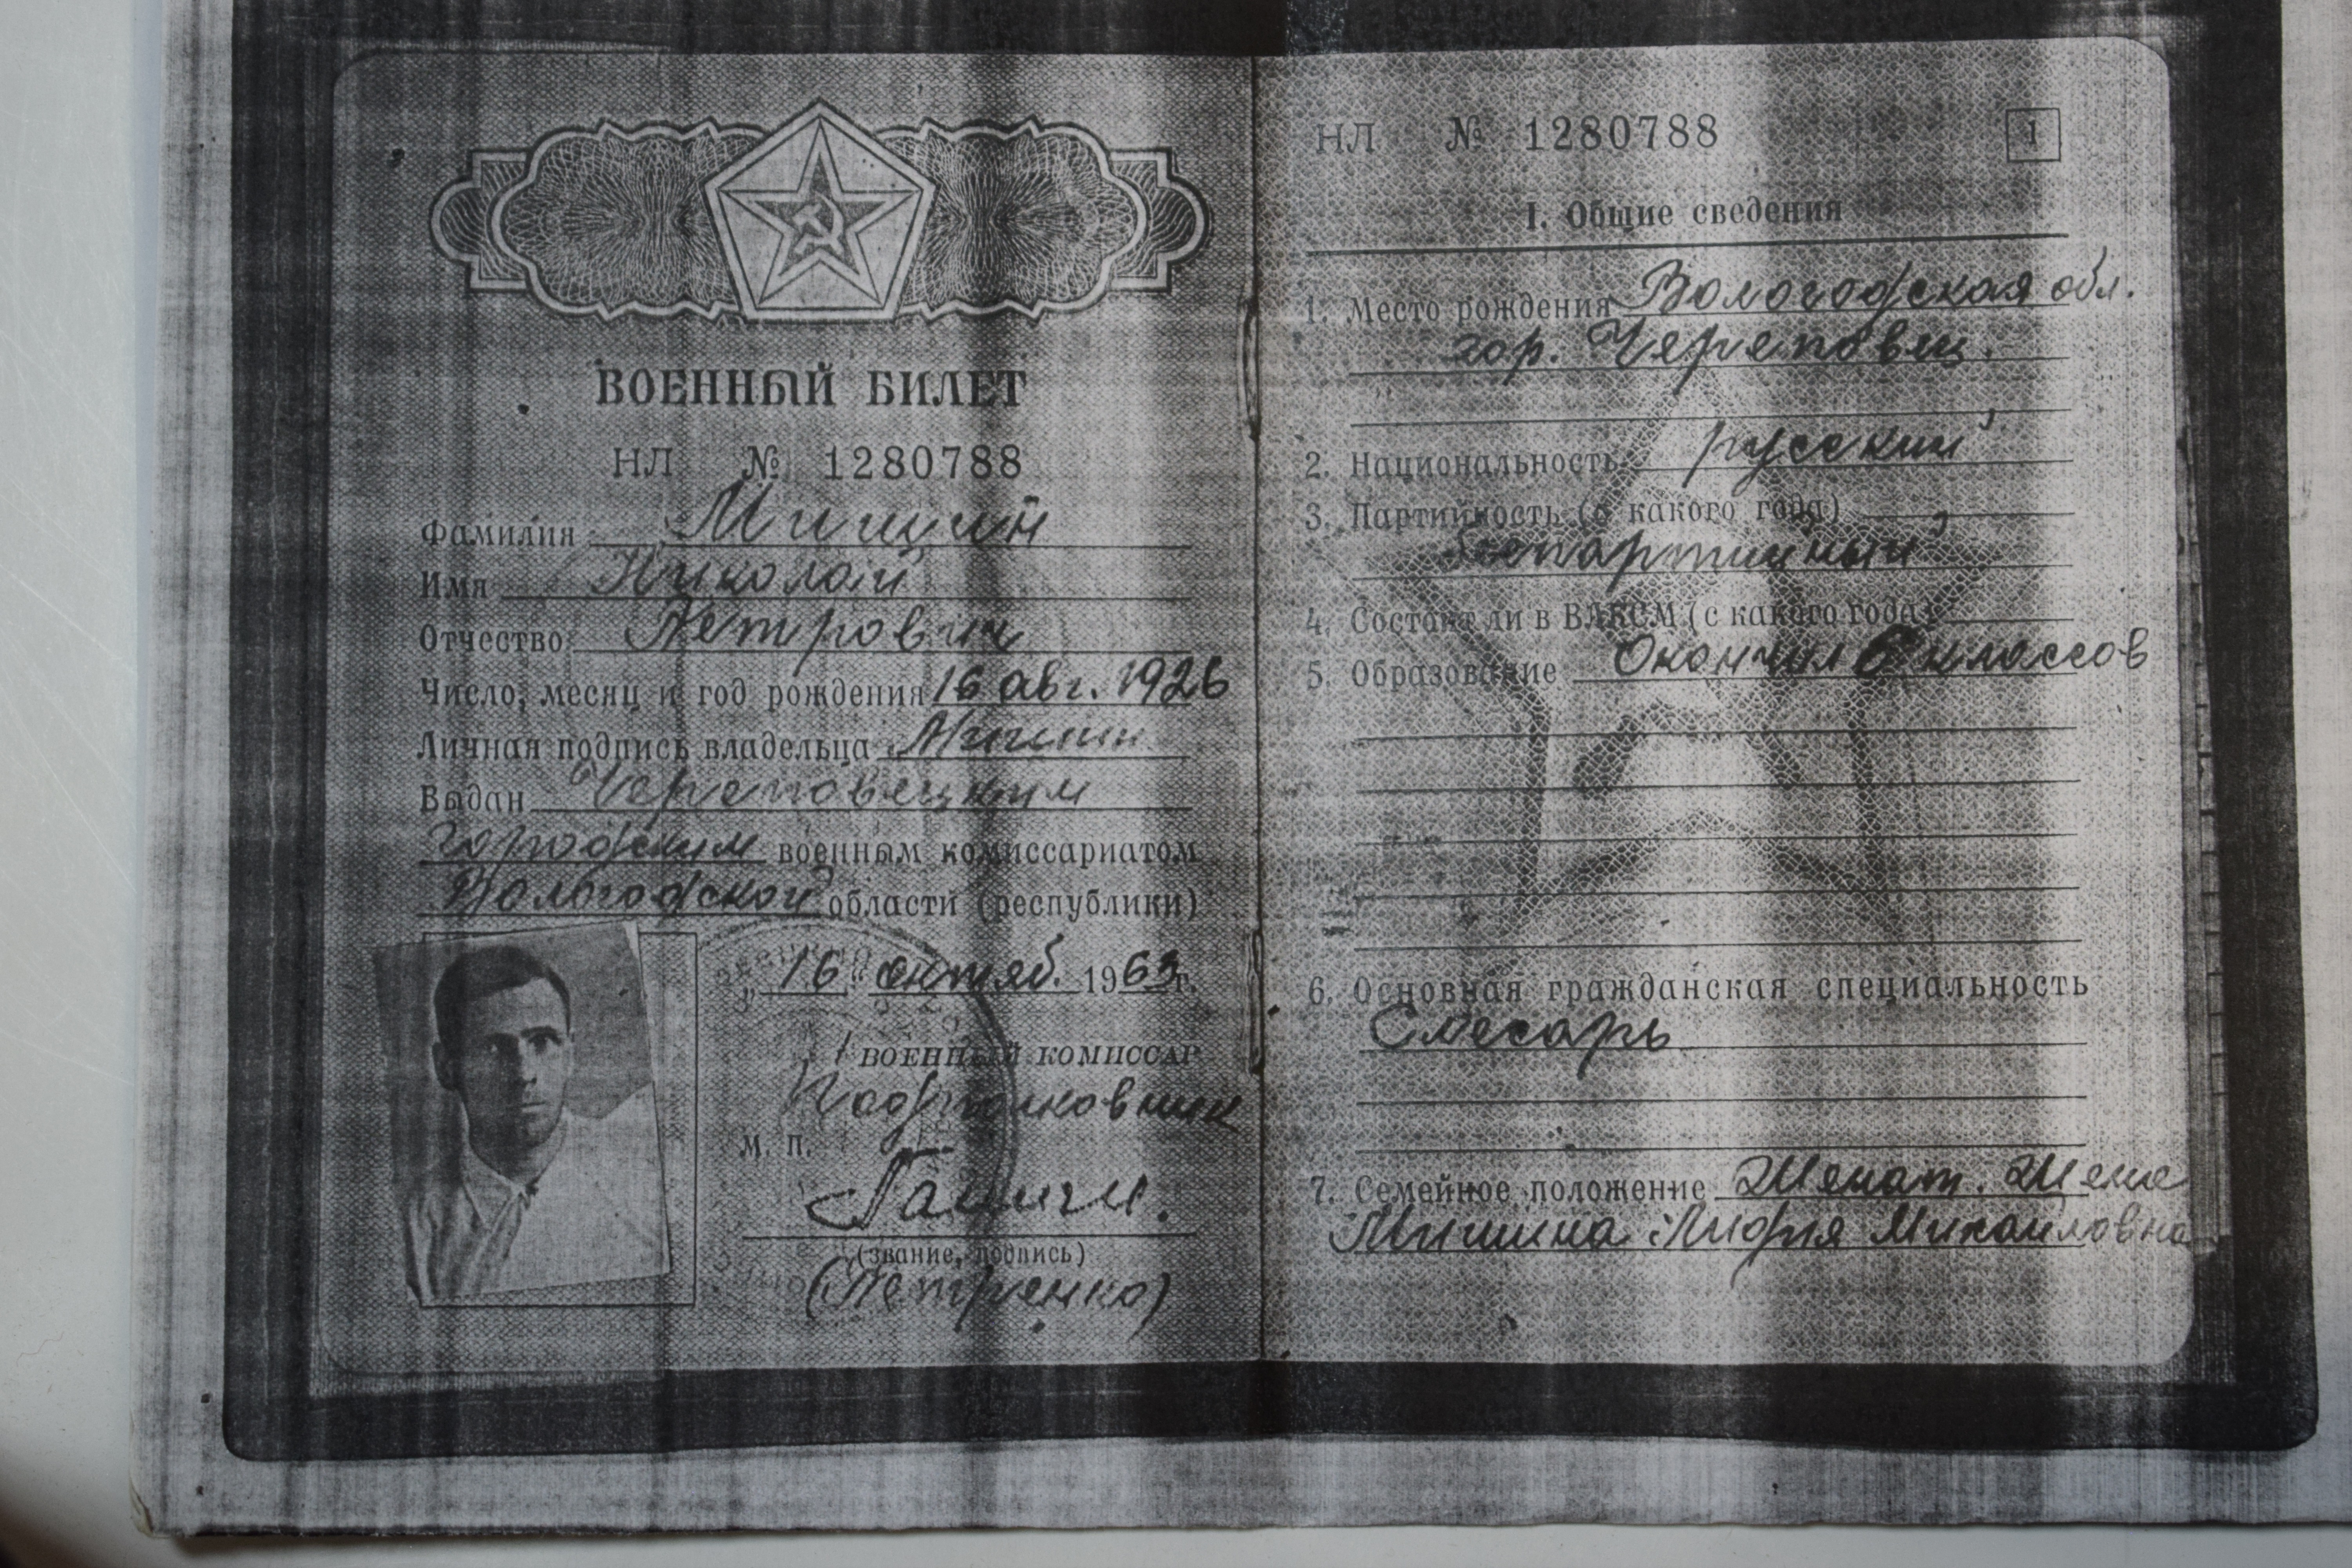 ВОЕННЫЙ БИЛЕТ
НЛ № 1280788
Фамилия Мишин
Имя Николай
Отчество Петрович
Число, месяц и год рождения 16 авг. 1926
Личная подпись владельца Мишин
Выдан Череповецким
городским военным комиссариатом
Вологодской области (республики)
„16" октяб. 1963 г.
ВОЕННЫЙ КОМИССАР
Подполковник
М. П.
(звание, подпись)
(Петренко)
НЛ № 1280788
1
I. Общие сведения
1. Место рождения Вологодская обл.
гор. Череповец.
2. Национальность русский
3. Партийность (с какого года)
беспартийный
4. Состоит ли в ВЛКСМ (с какого года)
5. Образование Окончил 6 классов
6. Основная гражданская специальность
Слесарь
7. Семейное положение Женат. Жена
Мишина Лидия Михайловна